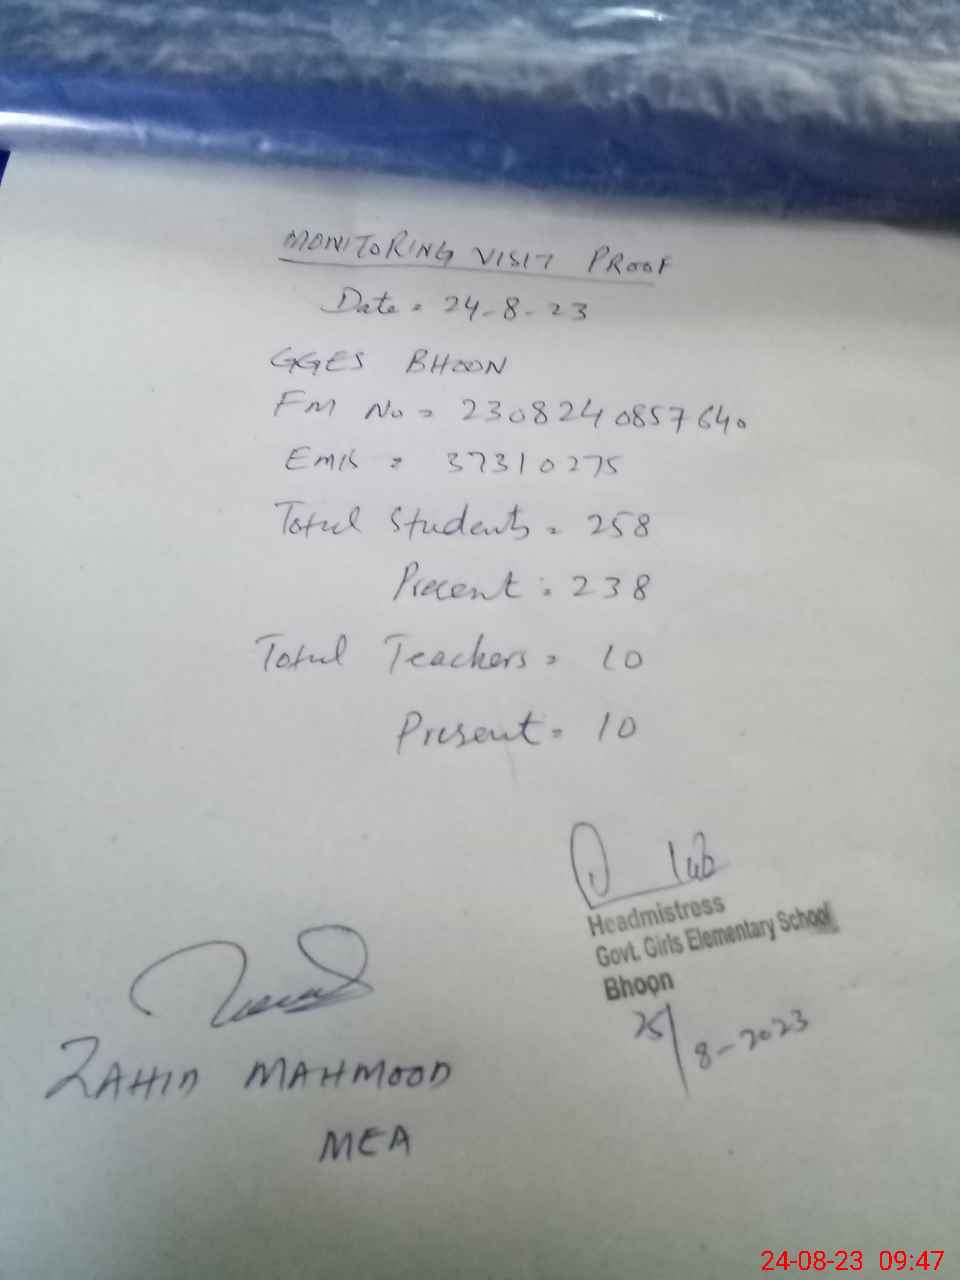 MONITORING VISIT PROOF
Date = 24-8-23
GGES BHOON
FM No = 230824085764०
Emis = 37310275
Total Students = 258
Present = 238
Total Teachers = 10
Present = 10
Headmistress
Govt. Girls Elementary School
Bhoon
25/8-2023
ZAHID MAHMOOD
MEA
24-08-23 09:47